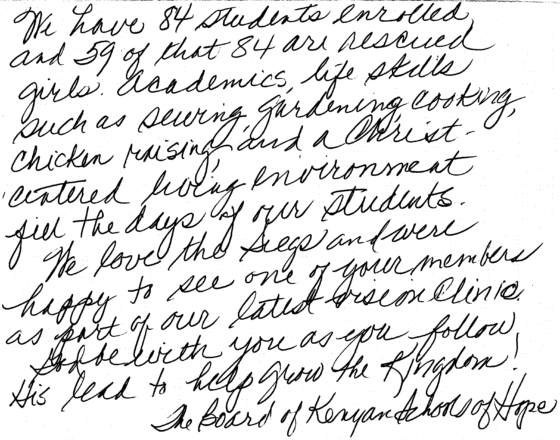 We have 84 students enrolled,
and 59 of that 84 are rescued
girls. Academics, life skills
such as sewing, gardening, cooking,
chicken raising, and a Christ-
centered living environment
fill the days of our students.
We love the Siegs and were
happy to see one of your members
as part of our latest vision clinic.
God be with you as you follow
His lead to help grow the Kingdom!
The Board of Kenyan Schools of Hope